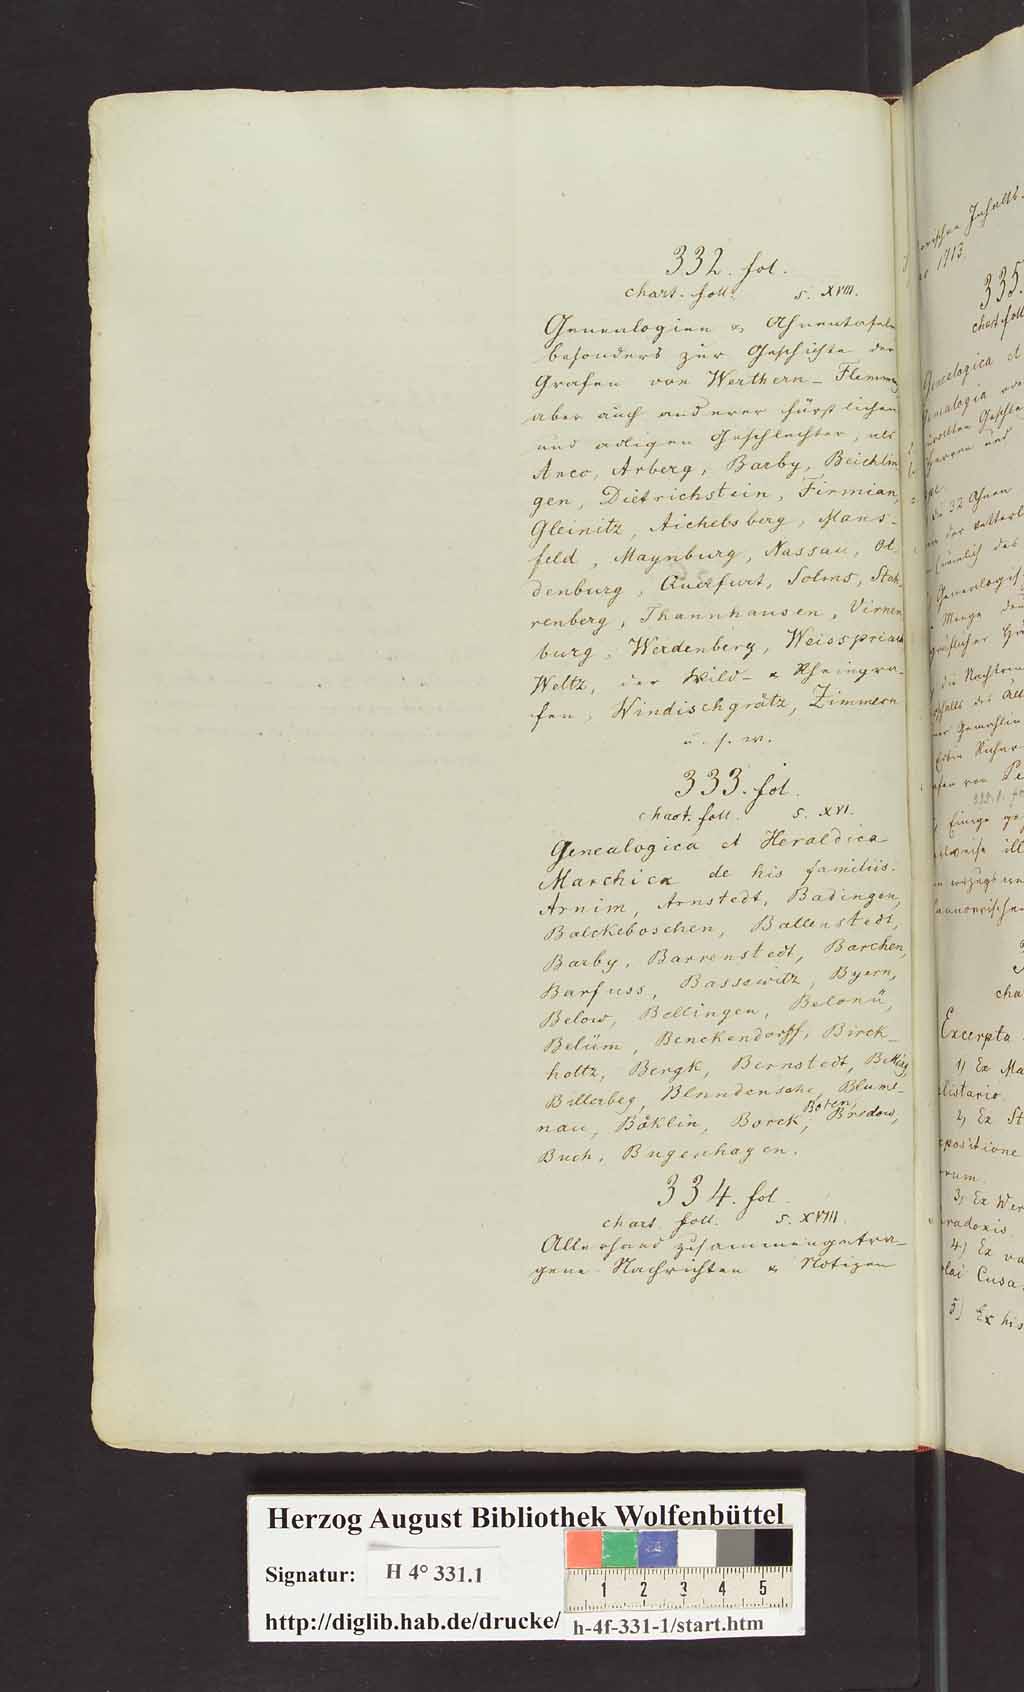 332. fol.
chart. foll. s. XVIII.
Genealogien & Ahnentafeln
besonders zur Geschichte der
Grafen von Werthern - Flemming
aber auch anderer fürstlichen
und adigen Geschlechter, als
Arco, Arberg, Barby, Beichlin
gen, Dietrichstein, Firmian,
Gleinitz, Aichelsberg, Mans-
feld, Maynburg, Nassau, Ol-
denburg, Querfurt, Solms, Stah-
renberg, Thannhausen, Virnen
burg, Werdenberg, Weisspriach
Weltz, der Wild- & Rheingra-
fen, Windischgrätz, Zimmern
u. s. w.
333. fol.
chart. foll. s. XVI.
Genealogica et Heraldica
Marchica de his familiis.
Arnim, Arnstedt, Badingen,
Balckeboschen, Ballenstedt,
Barby, Barrenstedt, Barchen,
Barfuss, Bassewitz, Byern,
Below, Bellingen, Belonü,
Belüm, Benckendorff, Birck-
holtz, Bergk, Bernstedt,
Billerbeg, Blnndensche, Blume-
nau, Böklin, Borck, Boren, Bredow,
Buch, Bugenhagen.
334. fol.
chart. foll. s. XVIII.
Allerhand zusammengetra-
gene Nachrichten & Notizen
Inhalts-
1713.
335.
chart. foll
Genealogica et
Genealogia
Geschlechter
Herren und
32 Ahnen
der
des
Menge
gräflicher
die
der Gemahlin
von
Einige
cha
Excerpta
1) Ex Ma
listario
2) Ex St
positione
rum
3) Ex Wer
radoxis
4) Ex va
lai Cusa
5) Ex his
Herzog August Bibliothek Wolfenbüttel
Signatur: H 4° 331.1
1 2 3 4 5
http://diglib.hab.de/drucke/ h-4f-331-1/start.htm